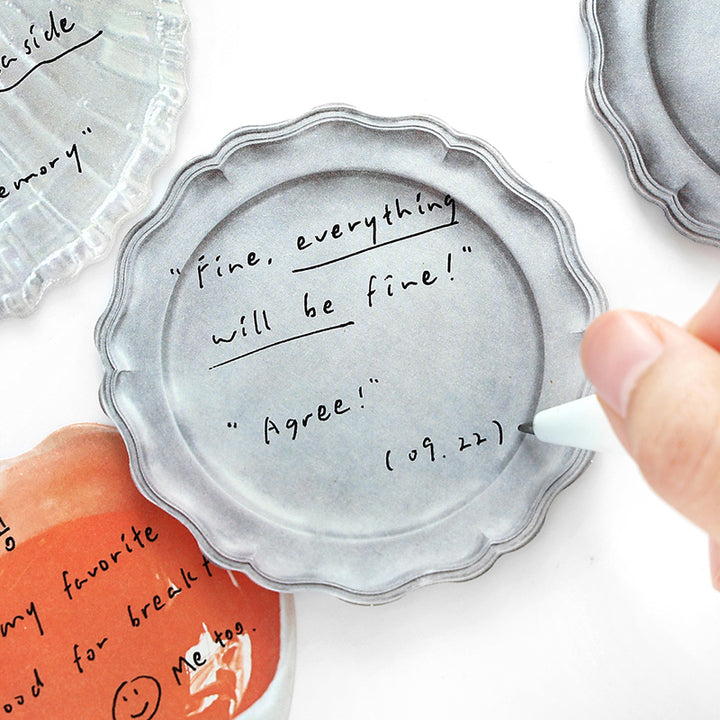 aside
emory"
"Fine, everything
will be fine!"
"Agree!"
(09.22)
my favorite
ood for breakf
Me too.